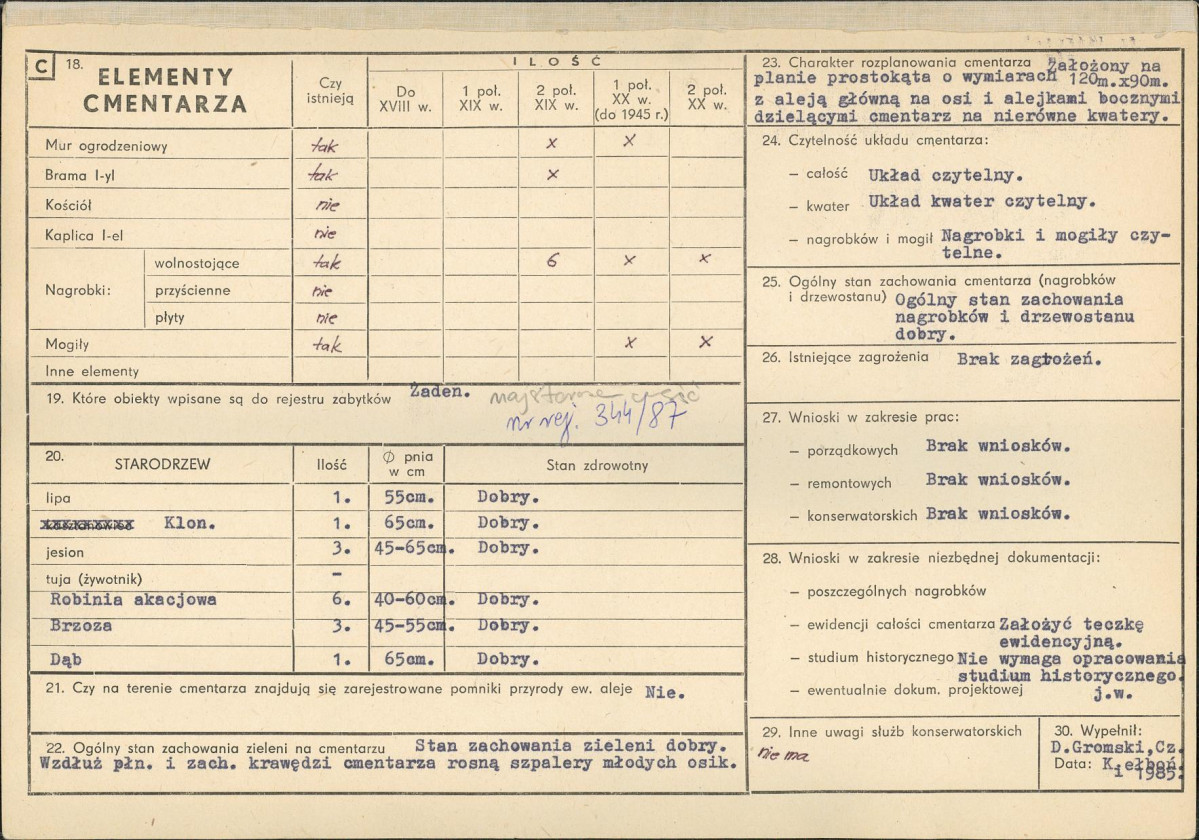 C 18. ELEMENTY CMENTARZA
Czy istnieją
ILOŚĆ
Do XVIII w.
1 poł. XIX w.
2 poł. XIX w.
1 poł. XX w. (do 1945 r.)
2 poł. XX w.
Mur ogrodzeniowy tak x x
Brama I-yl tak x
Kościół nie
Kaplica I-el nie
Nagrobki:
wolnostojące tak 6 x x
przyścienne nie
płyty nie
Mogiły tak x x
Inne elementy
19. Które obiekty wpisane są do rejestru zabytków Żaden. najstarsza część
nr rej. 344/87
20. STARODRZEW Ilość Ø pnia w cm Stan zdrowotny
lipa 1. 55cm. Dobry.
Klon. 1. 65cm. Dobry.
jesion 3. 45-65cm. Dobry.
tuja (żywotnik) –
Robinia akacjowa 6. 40-60cm. Dobry.
Brzoza 3. 45-55cm. Dobry.
Dąb 1. 65cm. Dobry.
21. Czy na terenie cmentarza znajdują się zarejestrowane pomniki przyrody ew. aleje Nie.
22. Ogólny stan zachowania zieleni na cmentarzu Stan zachowania zieleni dobry.
Wzdłuż płn. i zach. krawędzi cmentarza rosną szpalery młodych osik.
23. Charakter rozplanowania cmentarza Założony na
planie prostokąta o wymiarach 120m.x90m.
z aleją główną na osi i alejkami bocznymi
dzielącymi cmentarz na nierówne kwatery.
24. Czytelność układu cmentarza:
– całość Układ czytelny.
– kwater Układ kwater czytelny.
– nagrobków i mogił Nagrobki i mogiły czy-
telne.
25. Ogólny stan zachowania cmentarza (nagrobków
i drzewostanu) Ogólny stan zachowania
nagrobków i drzewostanu
dobry.
26. Istniejące zagrożenia Brak zagrożeń.
27. Wnioski w zakresie prac:
– porządkowych Brak wniosków.
– remontowych Brak wniosków.
– konserwatorskich Brak wniosków.
28. Wnioski w zakresie niezbędnej dokumentacji:
– poszczególnych nagrobków
– ewidencji całości cmentarza Założyć teczkę
ewidencyjną.
– studium historycznego Nie wymaga opracowania
studium historycznego.
– ewentualnie dokum. projektowej j.w.
29. Inne uwagi służb konserwatorskich
nie ma
30. Wypełnił:
D.Gromski,Cz.
Data: K.ełboń
i 1985.